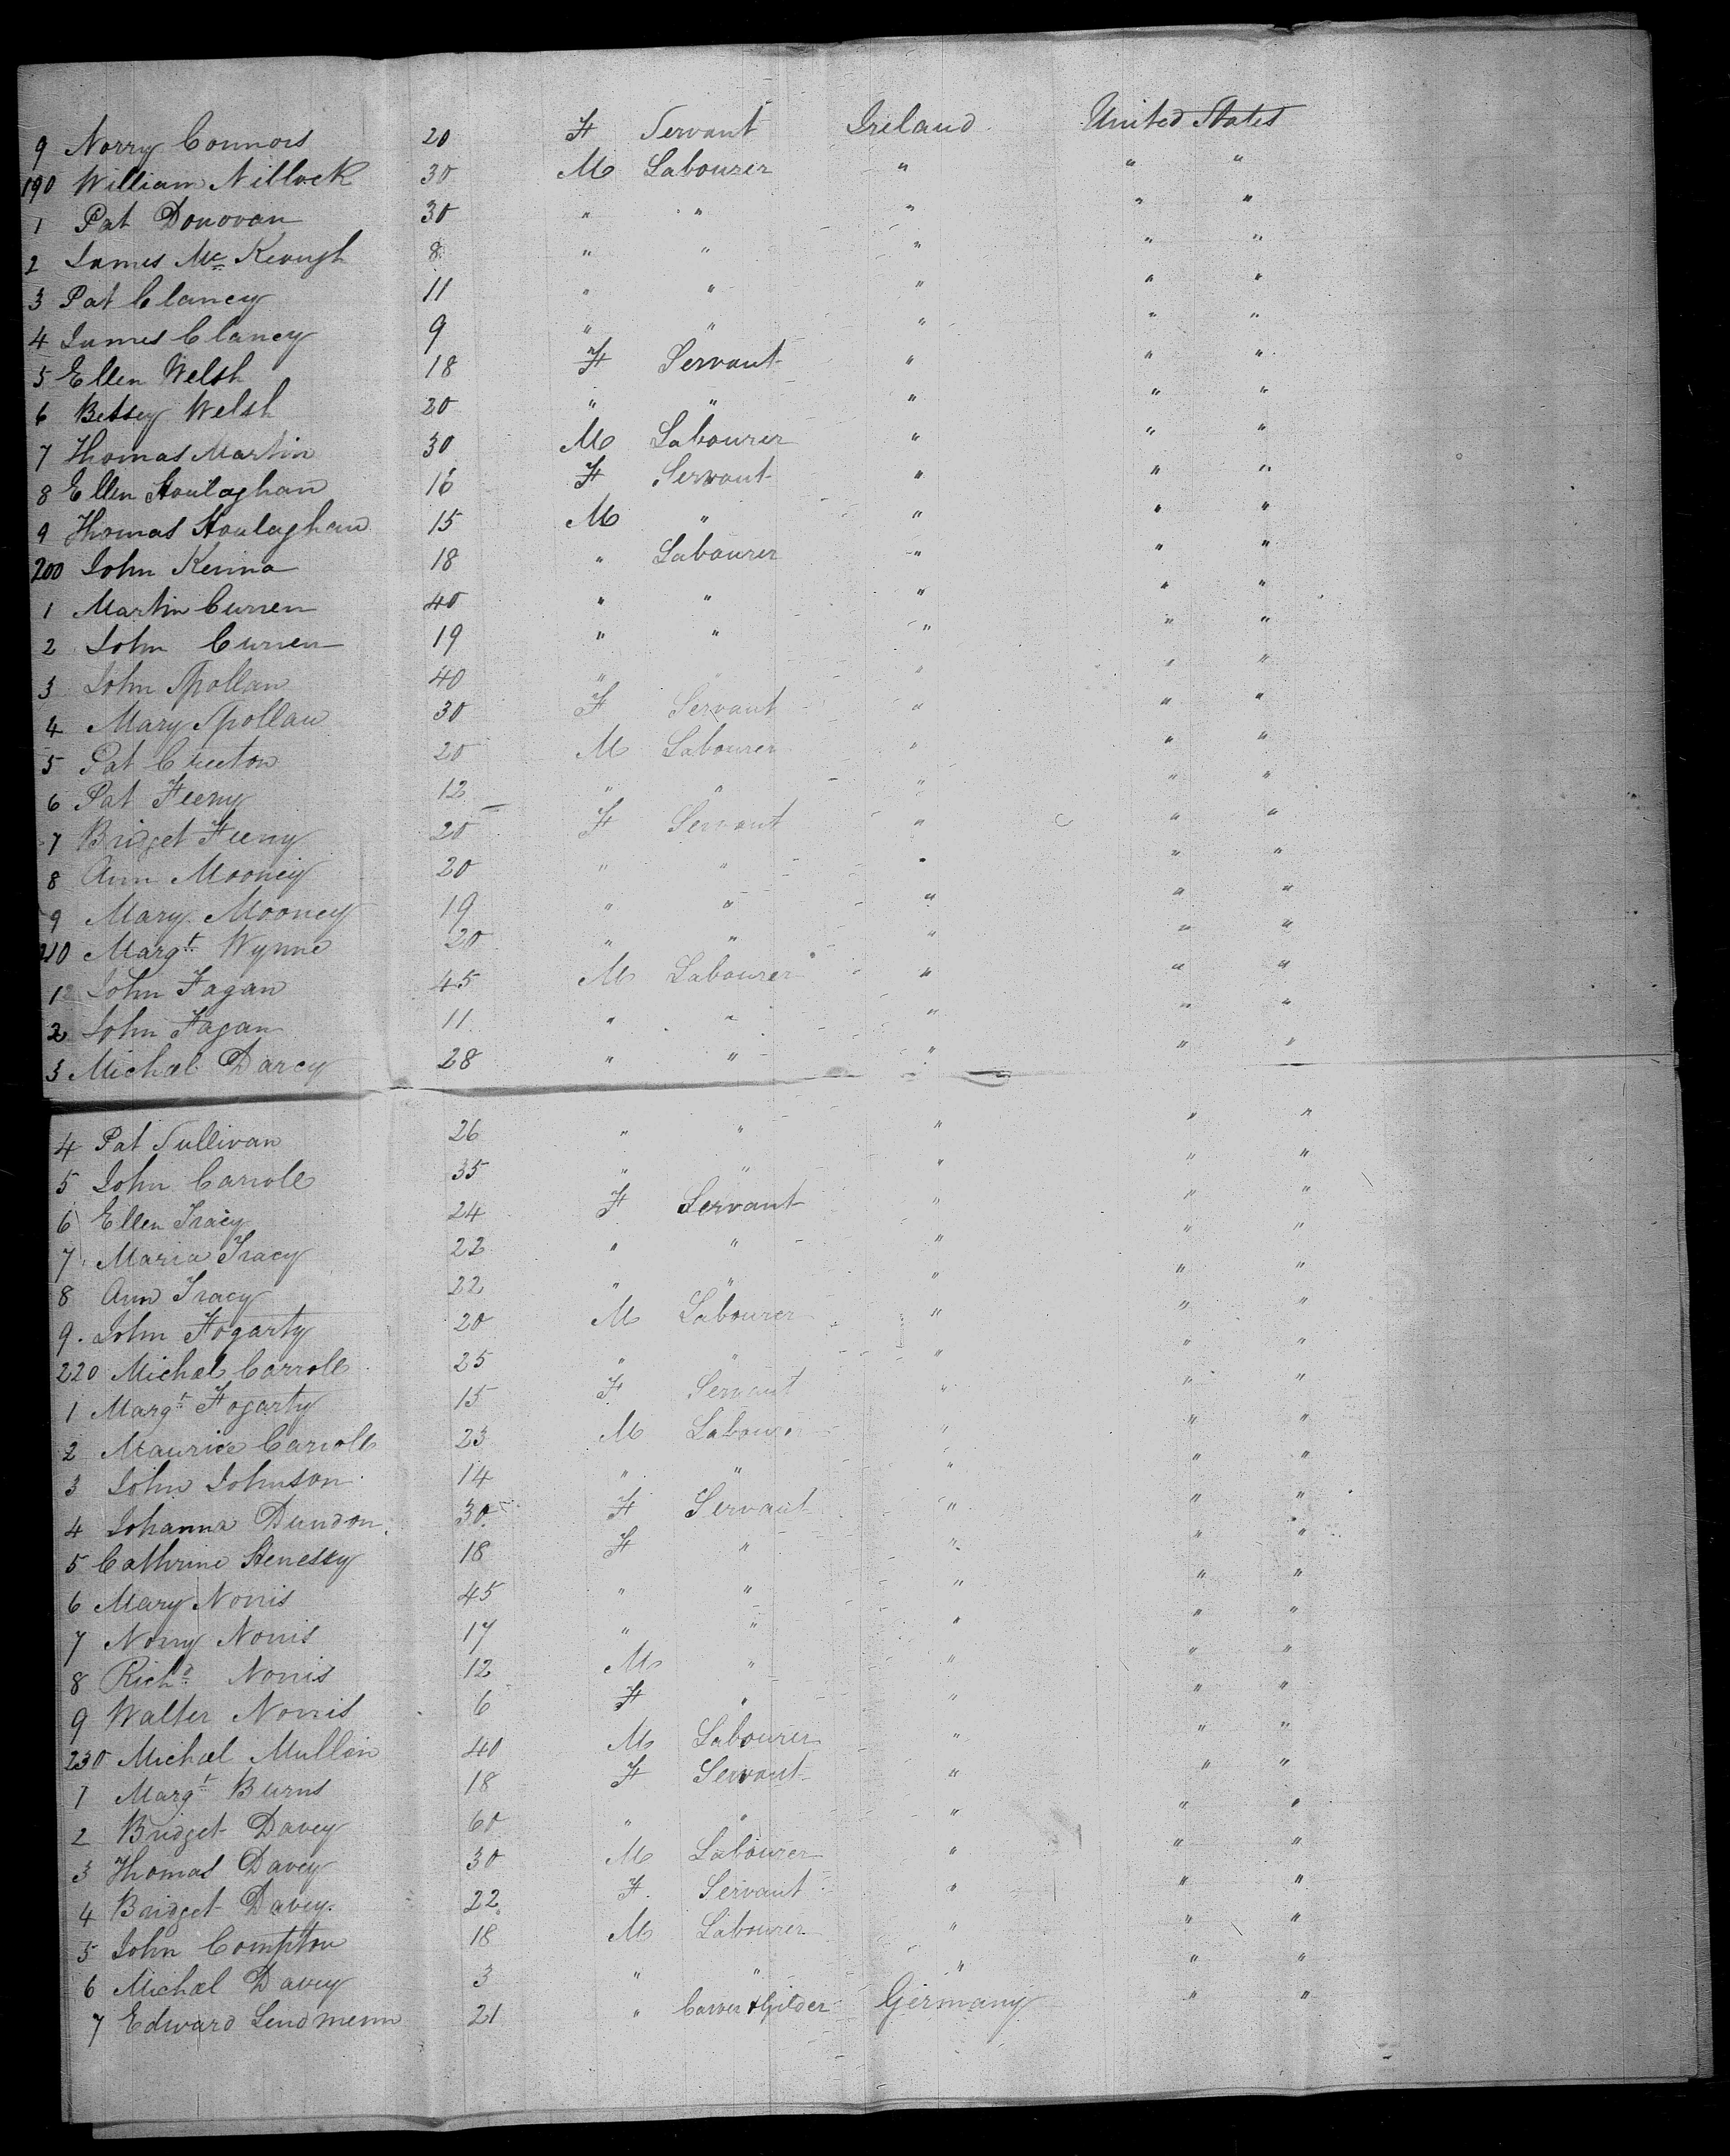 9 Norry Connors 20 F Servant Ireland United States
190 William Nillock 30 M Labourer " " "
1 Pat Donovan 30 " " " " "
2 James Mc Keough 8 " " " " "
3 Pat Clancy 11 " " " " "
4 James Clancy 9 " " " " "
5 Ellen Welsh 18 F Servant " " "
6 Betsey Welsh 20 " " " " "
7 Thomas Martin 30 M Labourer " " "
8 Ellen Houlaghan 16 F Servant " " "
9 Thomas Houlaghan 15 M " " " "
200 John Kenna 18 " Labourer " " "
1 Martin Curren 40 " " " " "
2 John Curren 19 " " " " "
3 John Spollan 40 " " " " "
4 Mary Spollan 30 F Servant " " "
5 Pat 20 M Labourer " " "
6 Pat Feeny 12 " " " " "
7 Bridget Feeny 20 F Servant " " "
8 Ann Mooney 20 " " " " "
9 Mary Mooney 19 " " " " "
210 Margt Wynne 20 " " " " "
1 John Fagan 45 M Labourer " " "
2 John Fagan 11 " " " " "
3 Michael Darcy 28 " " " " "
4 Pat Sullivan 26 " " " " "
5 John Carroll 35 " " " " "
6 Ellen Tracy 24 F Servant " " "
7 Maria Tracy 22 " " " " "
8 Ann Tracy 22 " " " " "
9. John Fogarty 20 M Labourer " " "
220 Michael Carroll 25 " " " " "
1 Margt Fogarty 15 F Servant " " "
2 Maurice Carroll 23 M Labourer " " "
3 John Johnson 14 " " " " "
4 Johanna Dundon 30 F Servant " " "
5 Cathrine Henessy 18 F " " " "
6 Mary Norris 45 " " " " "
7 Norry Norris 17 " " " " "
8 Richd Norris 12 M " " " "
9 Walter Norris 6 F " " " "
230 Michael Mullen 40 M Labourer " " "
1 Margt Burns 18 F Servant " " "
2 Bridget Davey 60 " " " " "
3 Thomas Davey 30 M Labourer " " "
4 Bridget Davey. 22 F Servant " " "
5 John Compton 18 M Labourer " " "
6 Michael Davey 3 " " " " "
7 Edward Lendmenn 21 " Carver & Gilder Germany " "